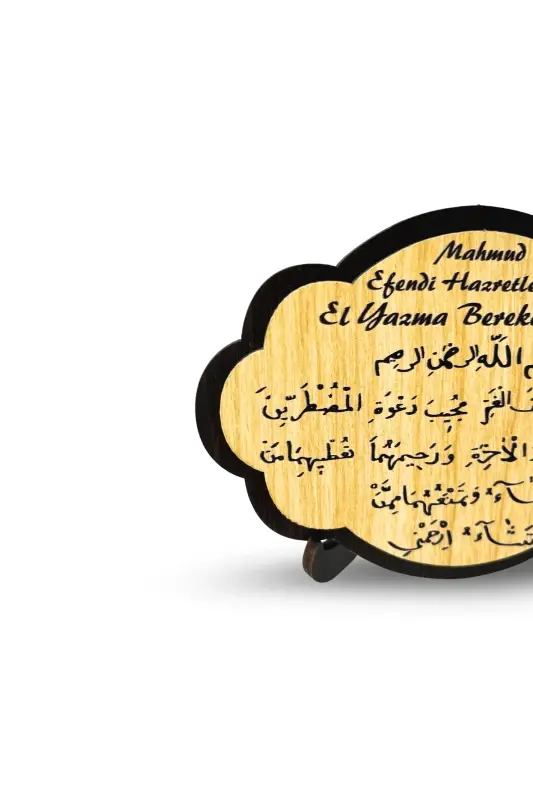 Mahmud
Efendi Hazretle
El Yazma Bereke
اللّٰهِ الرحمٰنِ الرحيم
الْغَمِّ مُجِيبَ دَعْوَةِ الْمُضْطَرِّينَ
الْاٰخِرَةِ وَرَحِيمَهُمَا تُعْطِيهِمَا مَنْ
تَشَٓاءُ وَتَمْنَعُهُمَا مِمَّنْ
تَشَٓاءُ اِرْحَمْنِي